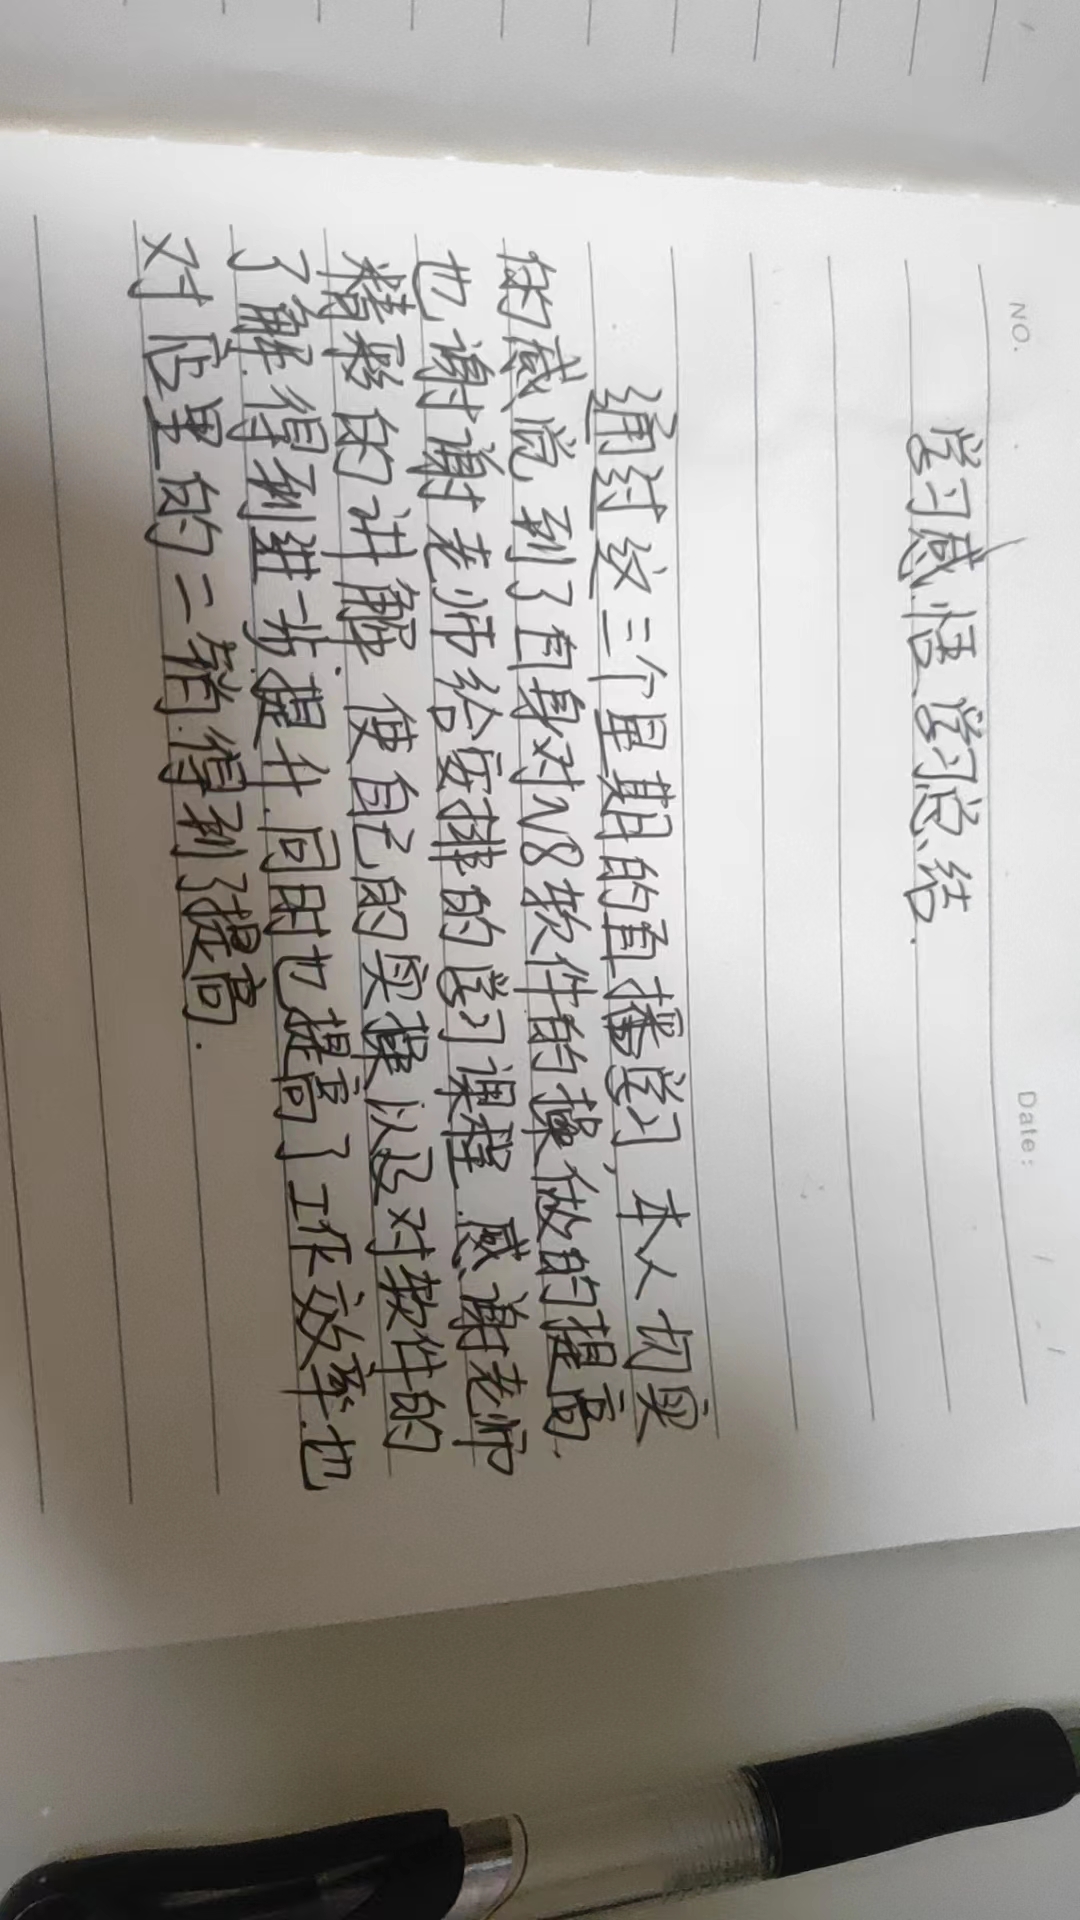 NO.
Date:
学习感悟学习总结.
通过这三个星期的直播学习,本人切实
的感觉到了自身对V8软件的操做的提高.
也谢谢老师给安排的学习课程.感谢老师
精彩的讲解.使自己的实操以及对软件的
了解.得到进一步.提升.同时也提高了工作效率.也
对店里的二销.得到了提高.